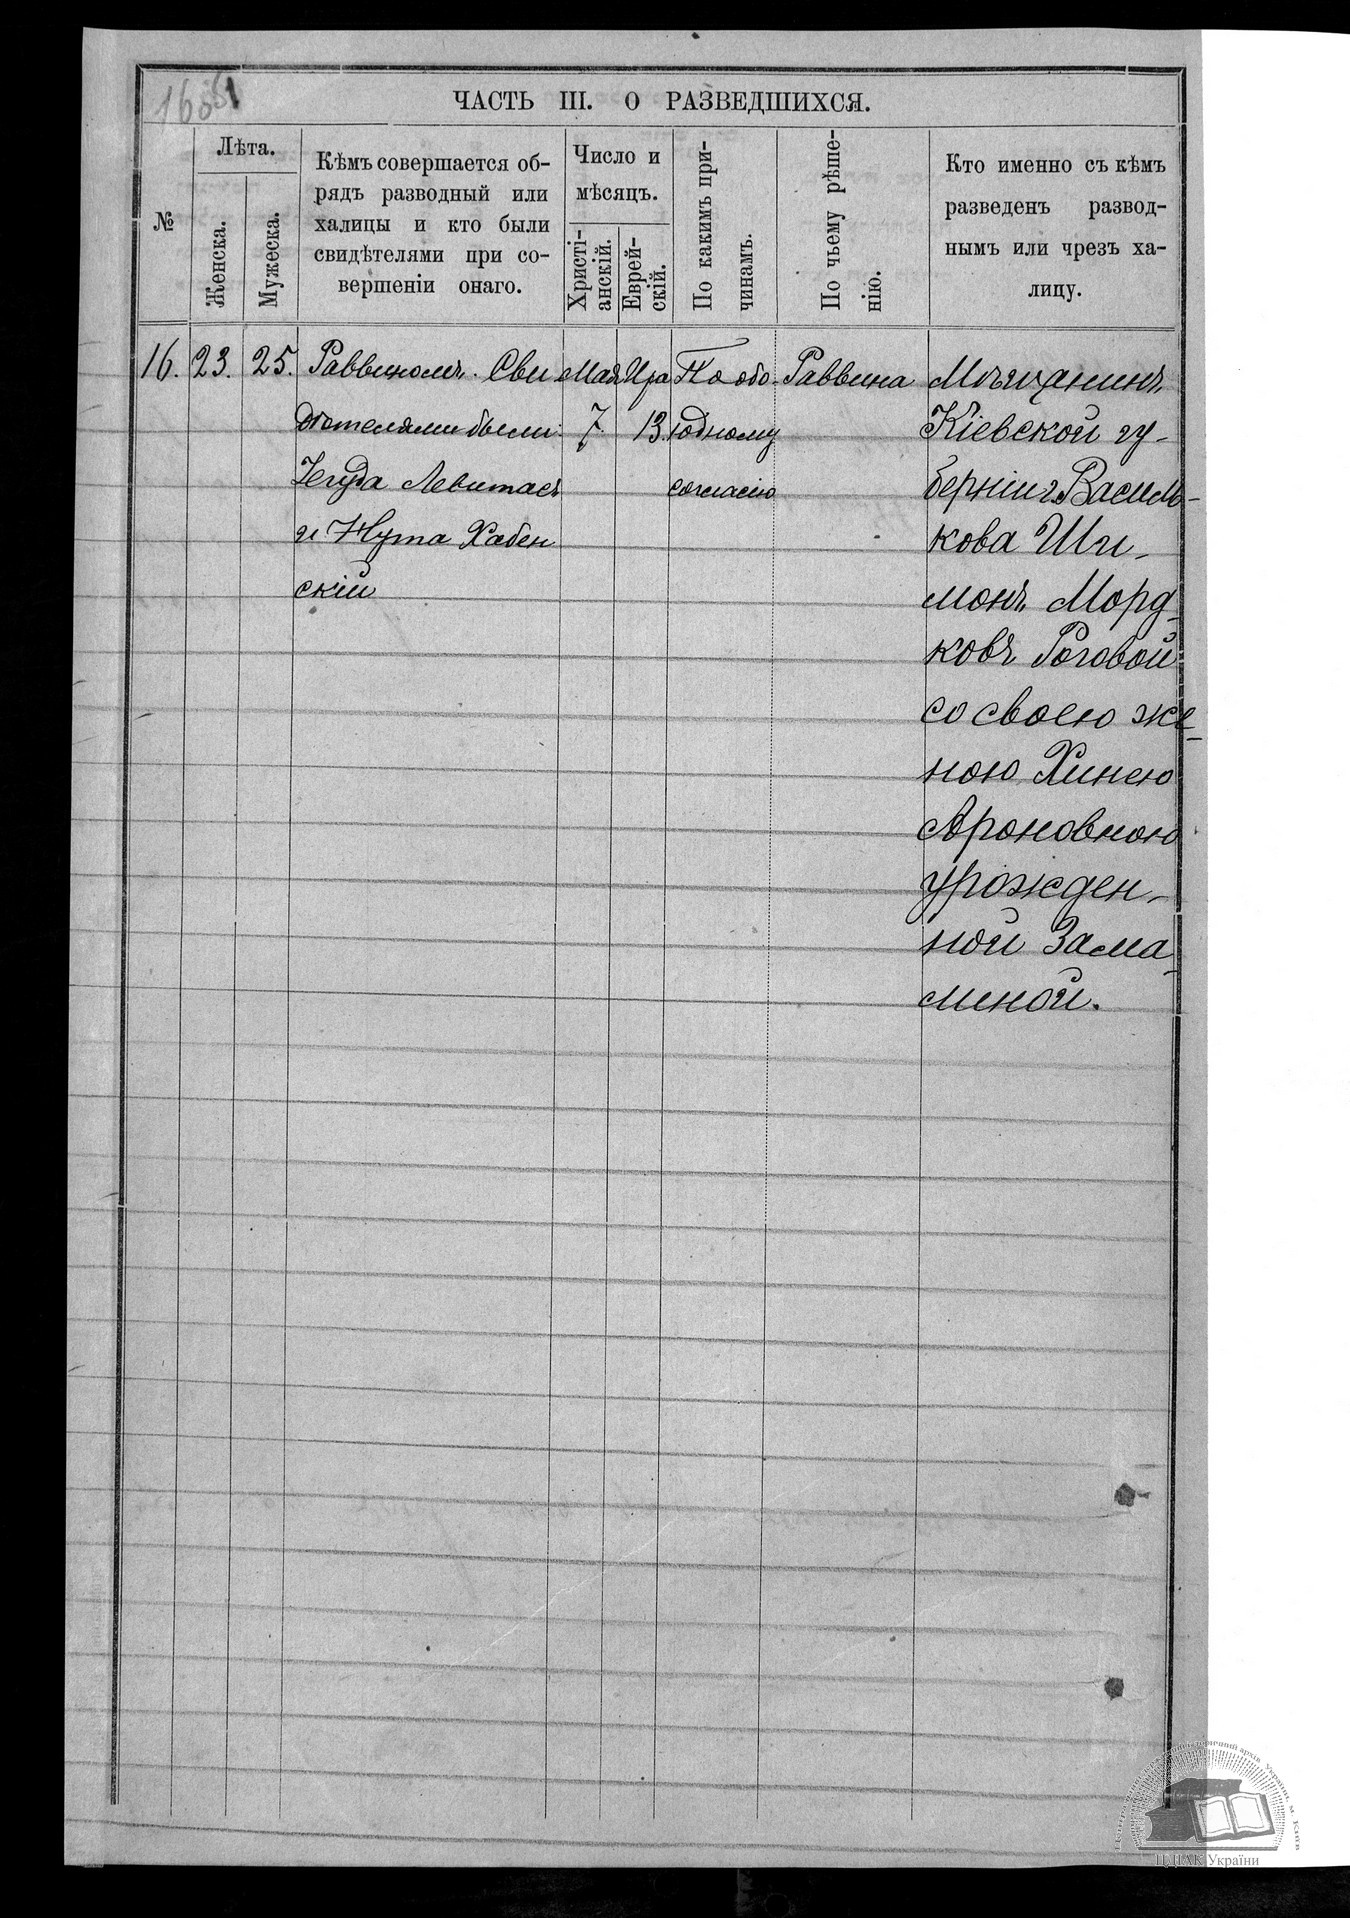 ЧАСТЬ III. О РАЗВЕДШИХСЯ.
№
Лѣта.
Женска.
Мужеска.
Кѣмъ совершается об-
рядъ разводный или
халицы и кто были
свидѣтелями при со-
вершеніи онаго.
Число и
мѣсяцъ.
Христі-
анскій.
Еврей-
скій.
По какимъ при-
чинамъ.
По чьему рѣше-
нію.
Кто именно съ кѣмъ
разведенъ развод-
нымъ или чрезъ ха-
лицу.
16.
23.
25.
Раввиномъ. Сви
дѣтелями были:
Іегуда Левитасъ
и Нута Хабен
скій
Мая
7
Ира
13.
По обо-
юдному
согласію
Раввина
Мѣщанинъ
Кіевской гу-
берніи г. Василь-
кова Ши-
монъ Морд-
ковъ Роговой
со своею же-
ною Хинею
Ароновною
урожден-
ной Зама-
линой.
ЦДІАК України